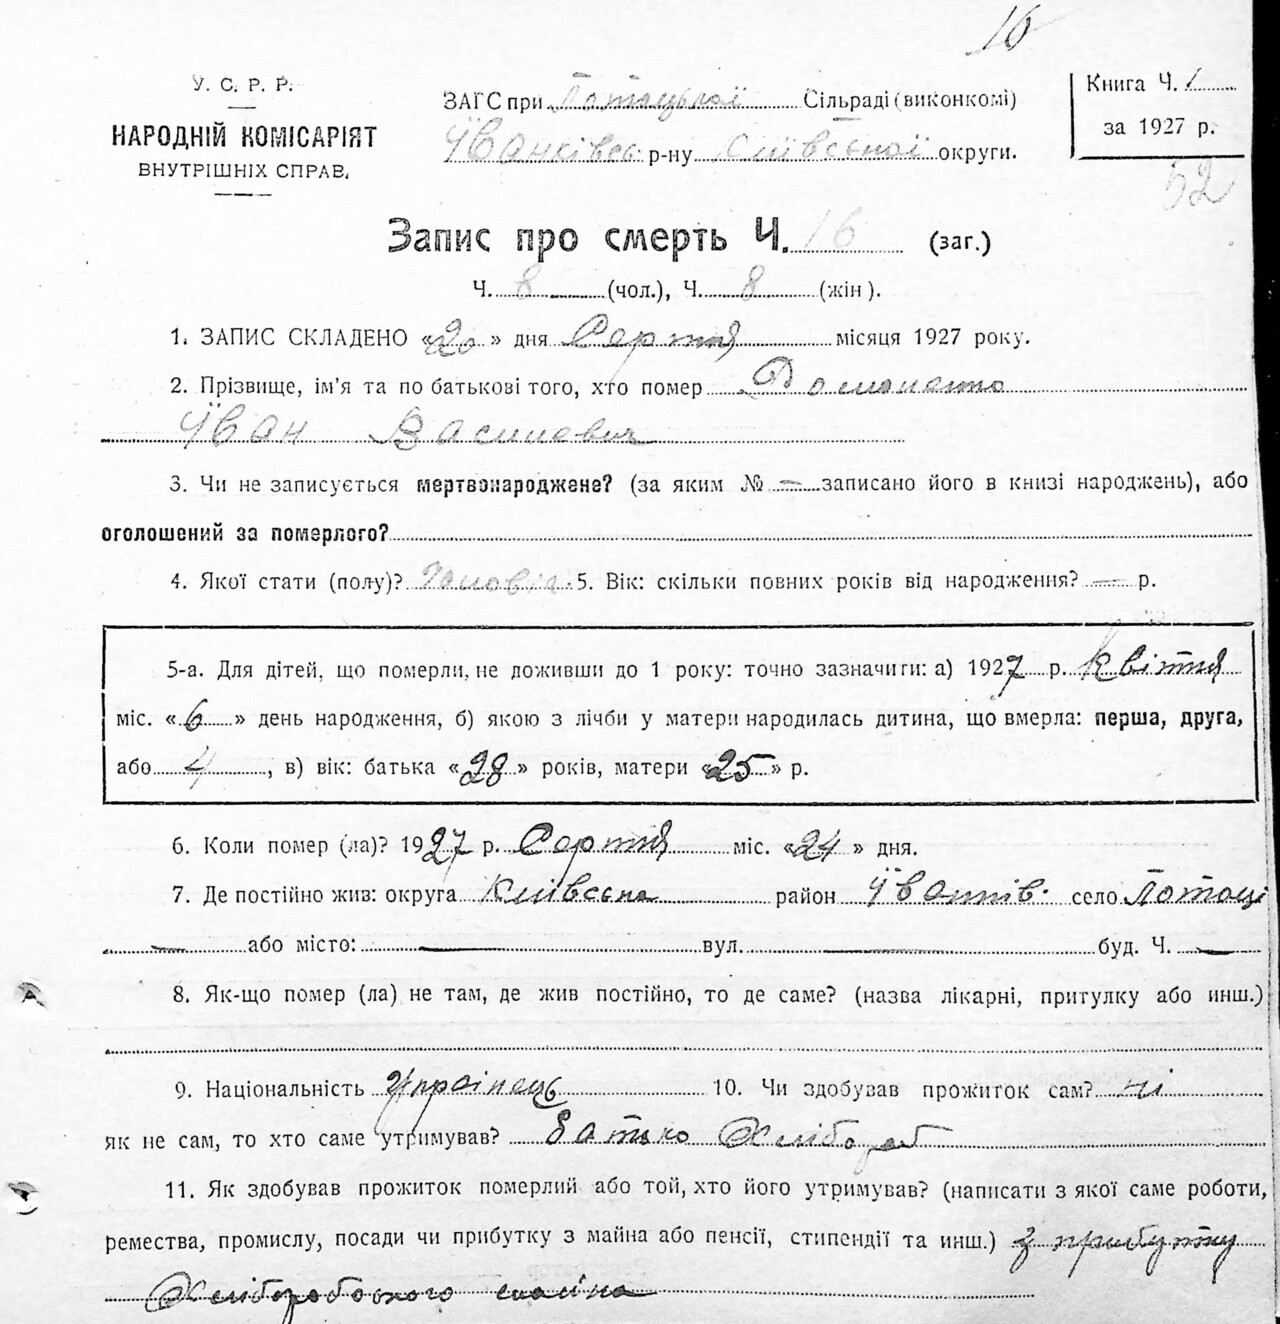 16
У. С. Р. Р.
НАРОДНІЙ КОМІСАРІЯТ
ВНУТРІШНІХ СПРАВ.
ЗАГС при Потоцької Сільраді (виконкомі)
Їванківсь. р-ну Київської округи.
Книга Ч. 1
за 1927 р.
52
Запис про смерть Ч. 16 (заг.)
Ч. 8 (чол.), Ч. 8 (жін).
1. ЗАПИС СКЛАДЕНО «26» дня Серпня місяця 1927 року.
2. Прізвище, ім'я та по батькові того, хто помер
Їван Василович
3. Чи не записується мертвонароджене? (за яким № — записано його в книзі народжень), або
оголошений за померлого?
4. Якої стати (полу)? 5. Вік: скільки повних років від народження? — р.
5-а. Для дітей, що померли, не доживши до 1 року: точно зазначити: а) 1927 р. Квітня
міс. «6» день народження, б) якою з лічби у матери народилась дитина, що вмерла: перша, друга,
або 4, в) вік: батька «28» років, матери «25» р.
6. Коли помер (ла)? 1927 р. Серпня міс. «24» дня.
7. Де постійно жив: округа Київська район Їванків. село Потоці
— або місто: — вул. — буд. Ч. —
8. Як-що помер (ла) не там, де жив постійно, то де саме? (назва лікарні, притулку або инш.)
9. Національність Українець 10. Чи здобував прожиток сам? ні
як не сам, то хто саме утримував? батько Хлібороб
11. Як здобував прожиток померлий або той, хто його утримував? (написати з якої саме роботи,
ремества, промислу, посади чи прибутку з майна або пенсії, стипендії та инш.) з прибутку
Хліборобського майна